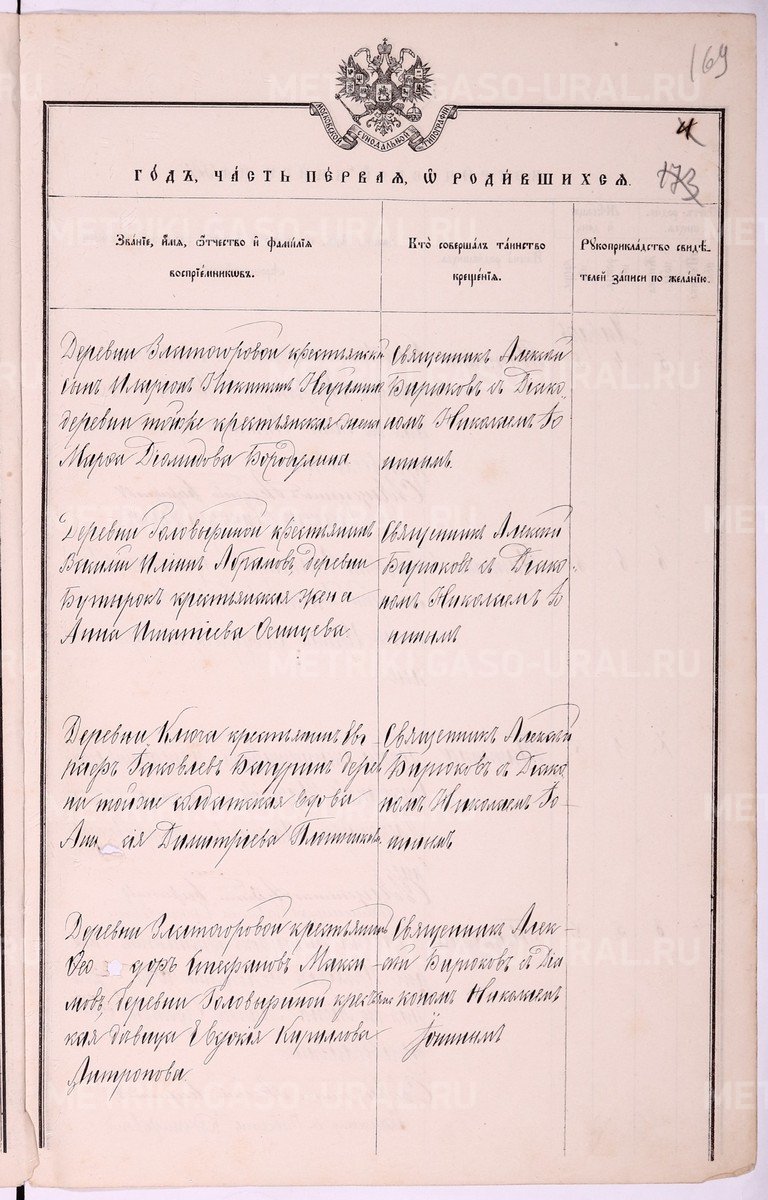 169
МОСКОВСКОЙ СѴНОДАЛЬНОЙ ТИПОГРАФІИ
173
ГО́ДЪ, ЧА́СТЬ ПЕ́РВАЯ, Ѡ҆ РОДИ́ВШИХСЯ.
Зва́нїе, и҆́мя, ѻ҆́тчество и҆ фами́лїя
воспрїе́мникѡвъ.
Кто̀ соверша́лъ та́инство
креще́нїя.
Рꙋкоприкла́дство свидѣ́-
телей за́писи по жела́нїю.
Деревни Златогоровой крестьянскій
сынъ Иларіонъ Никитинъ
деревни тойже крестьянская жена
Марѳа Діомидова Бородулина
Священникъ Алексѣй
Бирюковъ съ Діако-
номъ Николаемъ
Деревни Головыриной крестьянинъ
Василій Илiинъ Абрамовъ, деревни
Бутырокъ крестьянская жена
Анна Игнатіева Осинцева.
Священникъ Алексѣй
Бирюковъ съ Діако-
номъ Николаемъ
Деревни Ключа крестьянинъ Ев-
графъ Іаковлевъ Бачуринъ дерев
ни тойже солдатская вдова
сія Димитріева Плотникова.
Священникъ Алексѣй
Бирюковъ съ Діако-
номъ Николаемъ
Деревни Златогоровой крестьянинъ
Ѳео доръ Стефановъ Макси-
мовъ, деревни Головыриной крестьянс
кая дѣвица Евдокія Кириллова
Митропова.
Священникъ Алек-
сѣй Бирюковъ съ Діа-
кономъ Николаемъ
METRIKI.GASO-URAL.RU